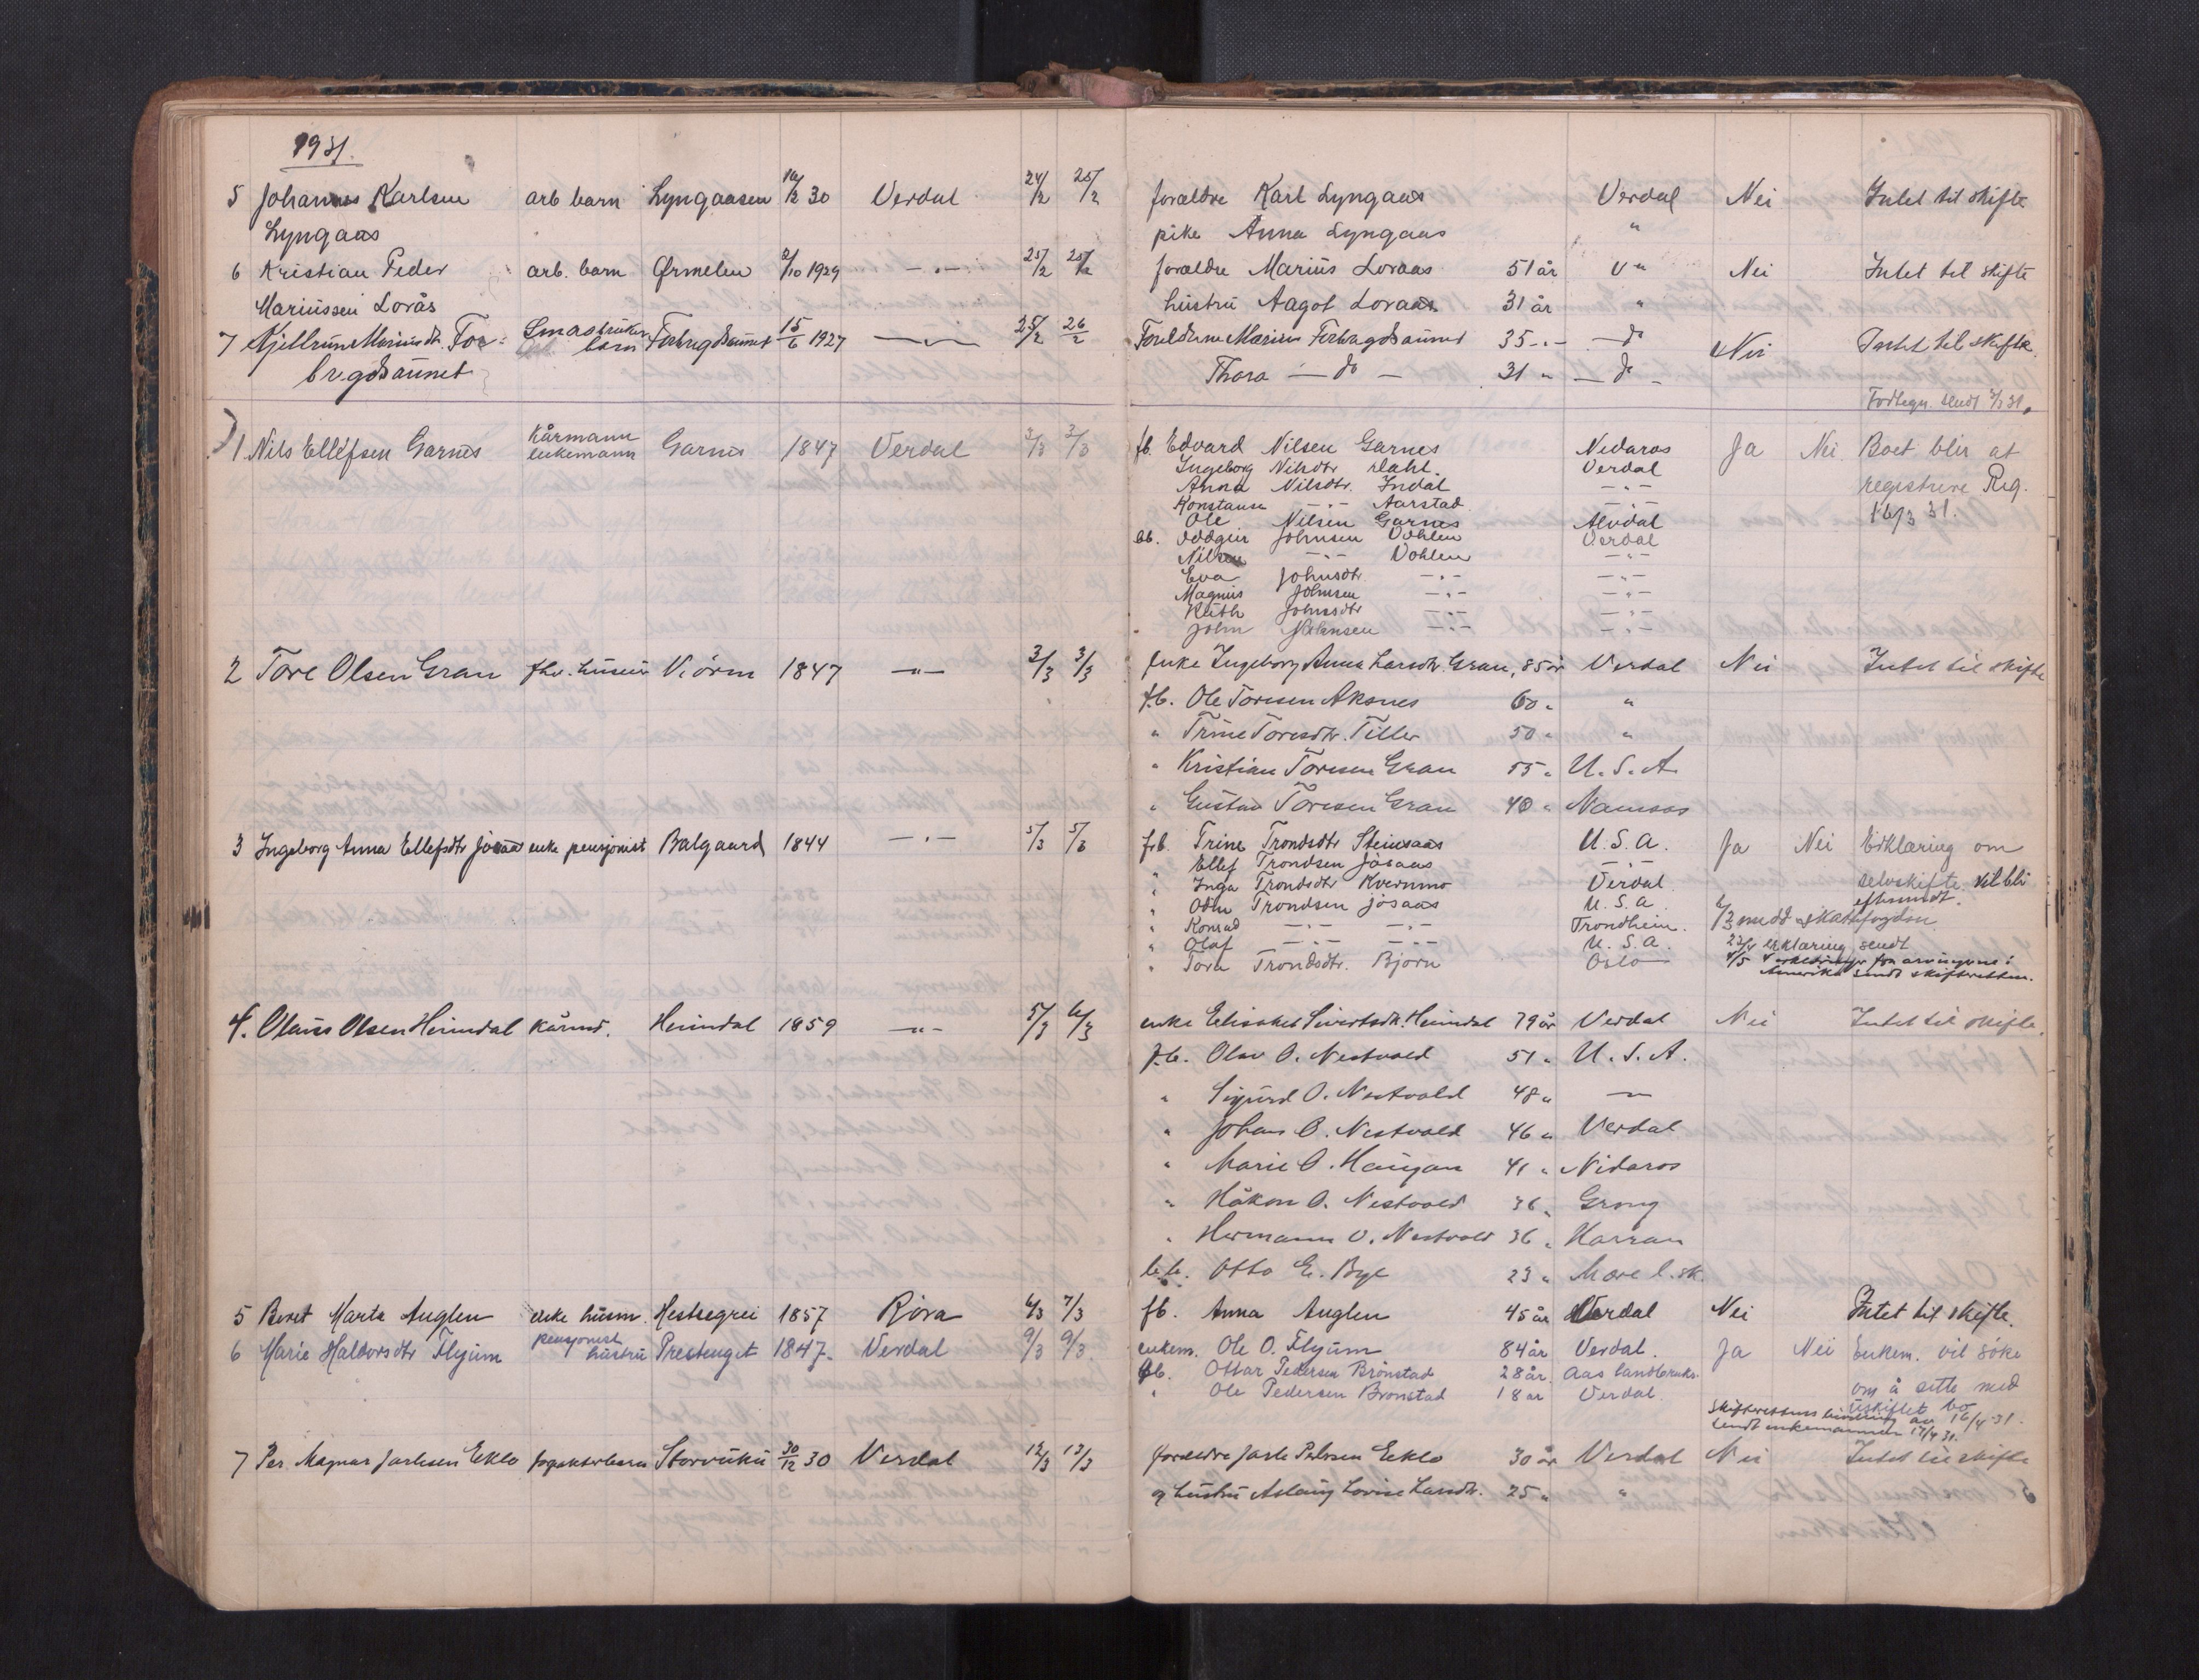 1931.
5 Johannes Karlsen arb barn Lyngaasen 30 Verdal 24/2 25/2 foreldre Karl Lyngaas Verdal Nei Intet til skifte
Lyngaas pike Anna Lyngaas "
6 Kristian Peder arb. barn Ørmelen 2/10 1929 -"- 25/2 25/2 foreldre Marius Loraas 51 år V" Nei Intet til skifte
Mariussen Lorås hustru Aagot Loraas 31 år "
7 Kjellrun Mariusdtr. For- Småbruker barn Forbregdsaunet 15/6 1927 -"- 25/2 26/2 Foreldrene Marius Forbregdsaunet 35 -"- - do Nei Intet til skifte.
bregdsaunet Thora - do - 31 " - do -
Fodtegn. sendt 2/3 31.
1. Nils Ellefsen Garnes Kårmann enkemann Garnes 1847 Verdal 3/3 3/3 fb. Edvard Nilsen Garnes Nidaros Ja Nei Boet blir at
Ingeborg Nilsdtr Dahl. Verdal registrere Reg.
Anna Nilsdtr. Indal -"- 16/3 31.
Konstanse -"- Aarstad -"-
Ole Nilsen Garnes Alvdal
bb. Oddgeir Johnsen Vohlen Verdal
Nils -"- Vohlen -"-
Eva Johnsdtr -"- -"-
Magnus Johnsen -"- -"-
Ruth Johnsdtr -"- -"-
John Johnsen -"- -"-
2 Tore Olsen Gran fhv. husm V. örm 1847 -"- 3/3 3/3 Enke Ingeborg Anna Larsdtr. Gran, 85 år Verdal Nei Intet til skifte
f.b. Ole Toresen Aksnes 60 " "
" Trine Toresdtr. Tiller 50 " "
" Kristian Toresen Gran 55 " U.S.A.
" Gustav Toresen Gran 40 " Namsos
3 Ingeborg Anna Ellefsdtr Josaas enke pensjonist Balgaard 1844 -"- 5/3 5/3 f.b. Trine Trondsdtr Steinsaas U.S.A. Ja Nei Erklæring om
" Ellef Trondsen Josaas -"- selvskifte vil bli
" Inga Trondsdtr Kvernmo Verdal eftersendt.
" Odin Trondsen Josaas U.S.A. medd skattefogden
" Konrad -"- -"- Trondheim.
" Olaf -"- -"- U.S.A. 22/4 erklæring sendt
" Tora Trondsdtr. Bjørn Oslo 4/5 4 erklæringer fra arvingene i
Amerika sendt skifteretten.
4. Olaus Olsen Heimdal kårmd. Heimdal 1859 -"- 5/3 6/3 enke Elisabet Sivertsdtr. Heimdal 79 år Verdal Nei Intet til skifte.
f.b. Olav O. Nestvold 51 " U.S.A.
" Sigurd O. Nestvold 48 " -"-
" Johan O. Nestvold 46 " Verdal
" Marie O. Haugan 41 " Nidaros
" Håkon O. Nestvold 36 " Grong
" Hermann O. Nestvold 36 " Harran
b.b. Otto E. Bye 23 " Mære l.sk.
5 Beret Marta Auglen enke husm. Hestegrei 1857 Røra 6/3 7/3 fb. Anna Auglen 45 år Verdal Nei Intet til skifte.
6 Marie Haldorsdtr Flyum pensjonist hustru Prestenget 1847 Verdal 9/3 9/3 enkem. Ole O. Flyum 84 år Verdal. Ja Nei Enkem. vil söke
bb. Ottar Pedersen Brönstad 28 år. Aas landbruks- om å sitte med
" Ole Pedersen Bronstad 18 år Verdal. uskiftet bo
Skifterettens av 16/4 31.
sendt enkemannen 17/4 31.
7 Per Magnar Jarlesen Eklo barn Storvuku 30/12 30 Verdal 12/3 13/3 foreldre Jarle Petersen Eklo 30 år Verdal Nei Intet til skifte
og hustru Aslaug Lovise Larsdtr. 25 " "